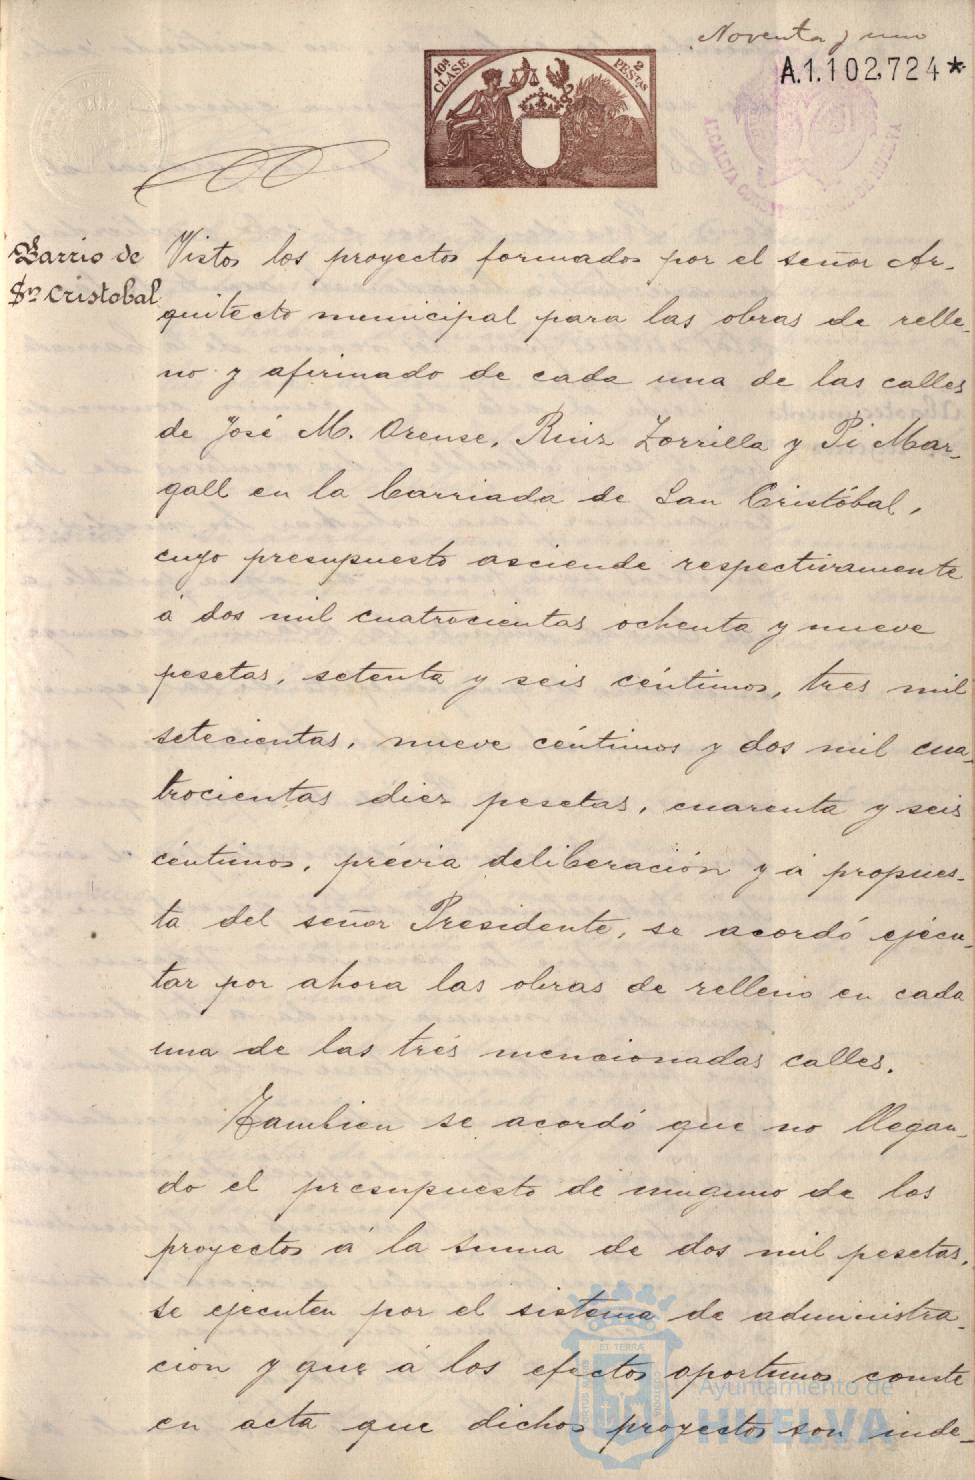 Noventa y uno
A.1.102.724*
10ª CLASE
2 PESETAS
ALCALDIA CONSTITUCIONAL DE HUELVA
Barrio de
Sn Cristobal
Vistos los proyectos formados por el señor Ar-
quitecto municipal para las obras de relle-
no y afirmado de cada una de las calles
de José M. Orense, Ruiz Zorrilla y Pi Mar-
gall en la barriada de San Cristóbal,
cuyo presupuesto asciende respectivamente
á dos mil cuatrocientas ochenta y nueve
pesetas, setenta y seis céntimos, tres mil
setecientas, nueve céntimos y dos mil cua-
trocientas diez pesetas, cuarenta y seis
céntimos, prévia deliberación y á propues-
ta del señor Presidente, se acordó ejecu-
tar por ahora las obras de relleno en cada
una de las trés mencionadas calles.
Tambien se acordó que no llegan-
do el presupuesto de ninguno de los
proyectos á la suma de dos mil pesetas,
se ejecuten por el sistema de administra-
cion y que á los efectos oportunos conste
en acta que dichos proyectos son inde-
ET TERRÆ
Ayuntamiento de
HUELVA